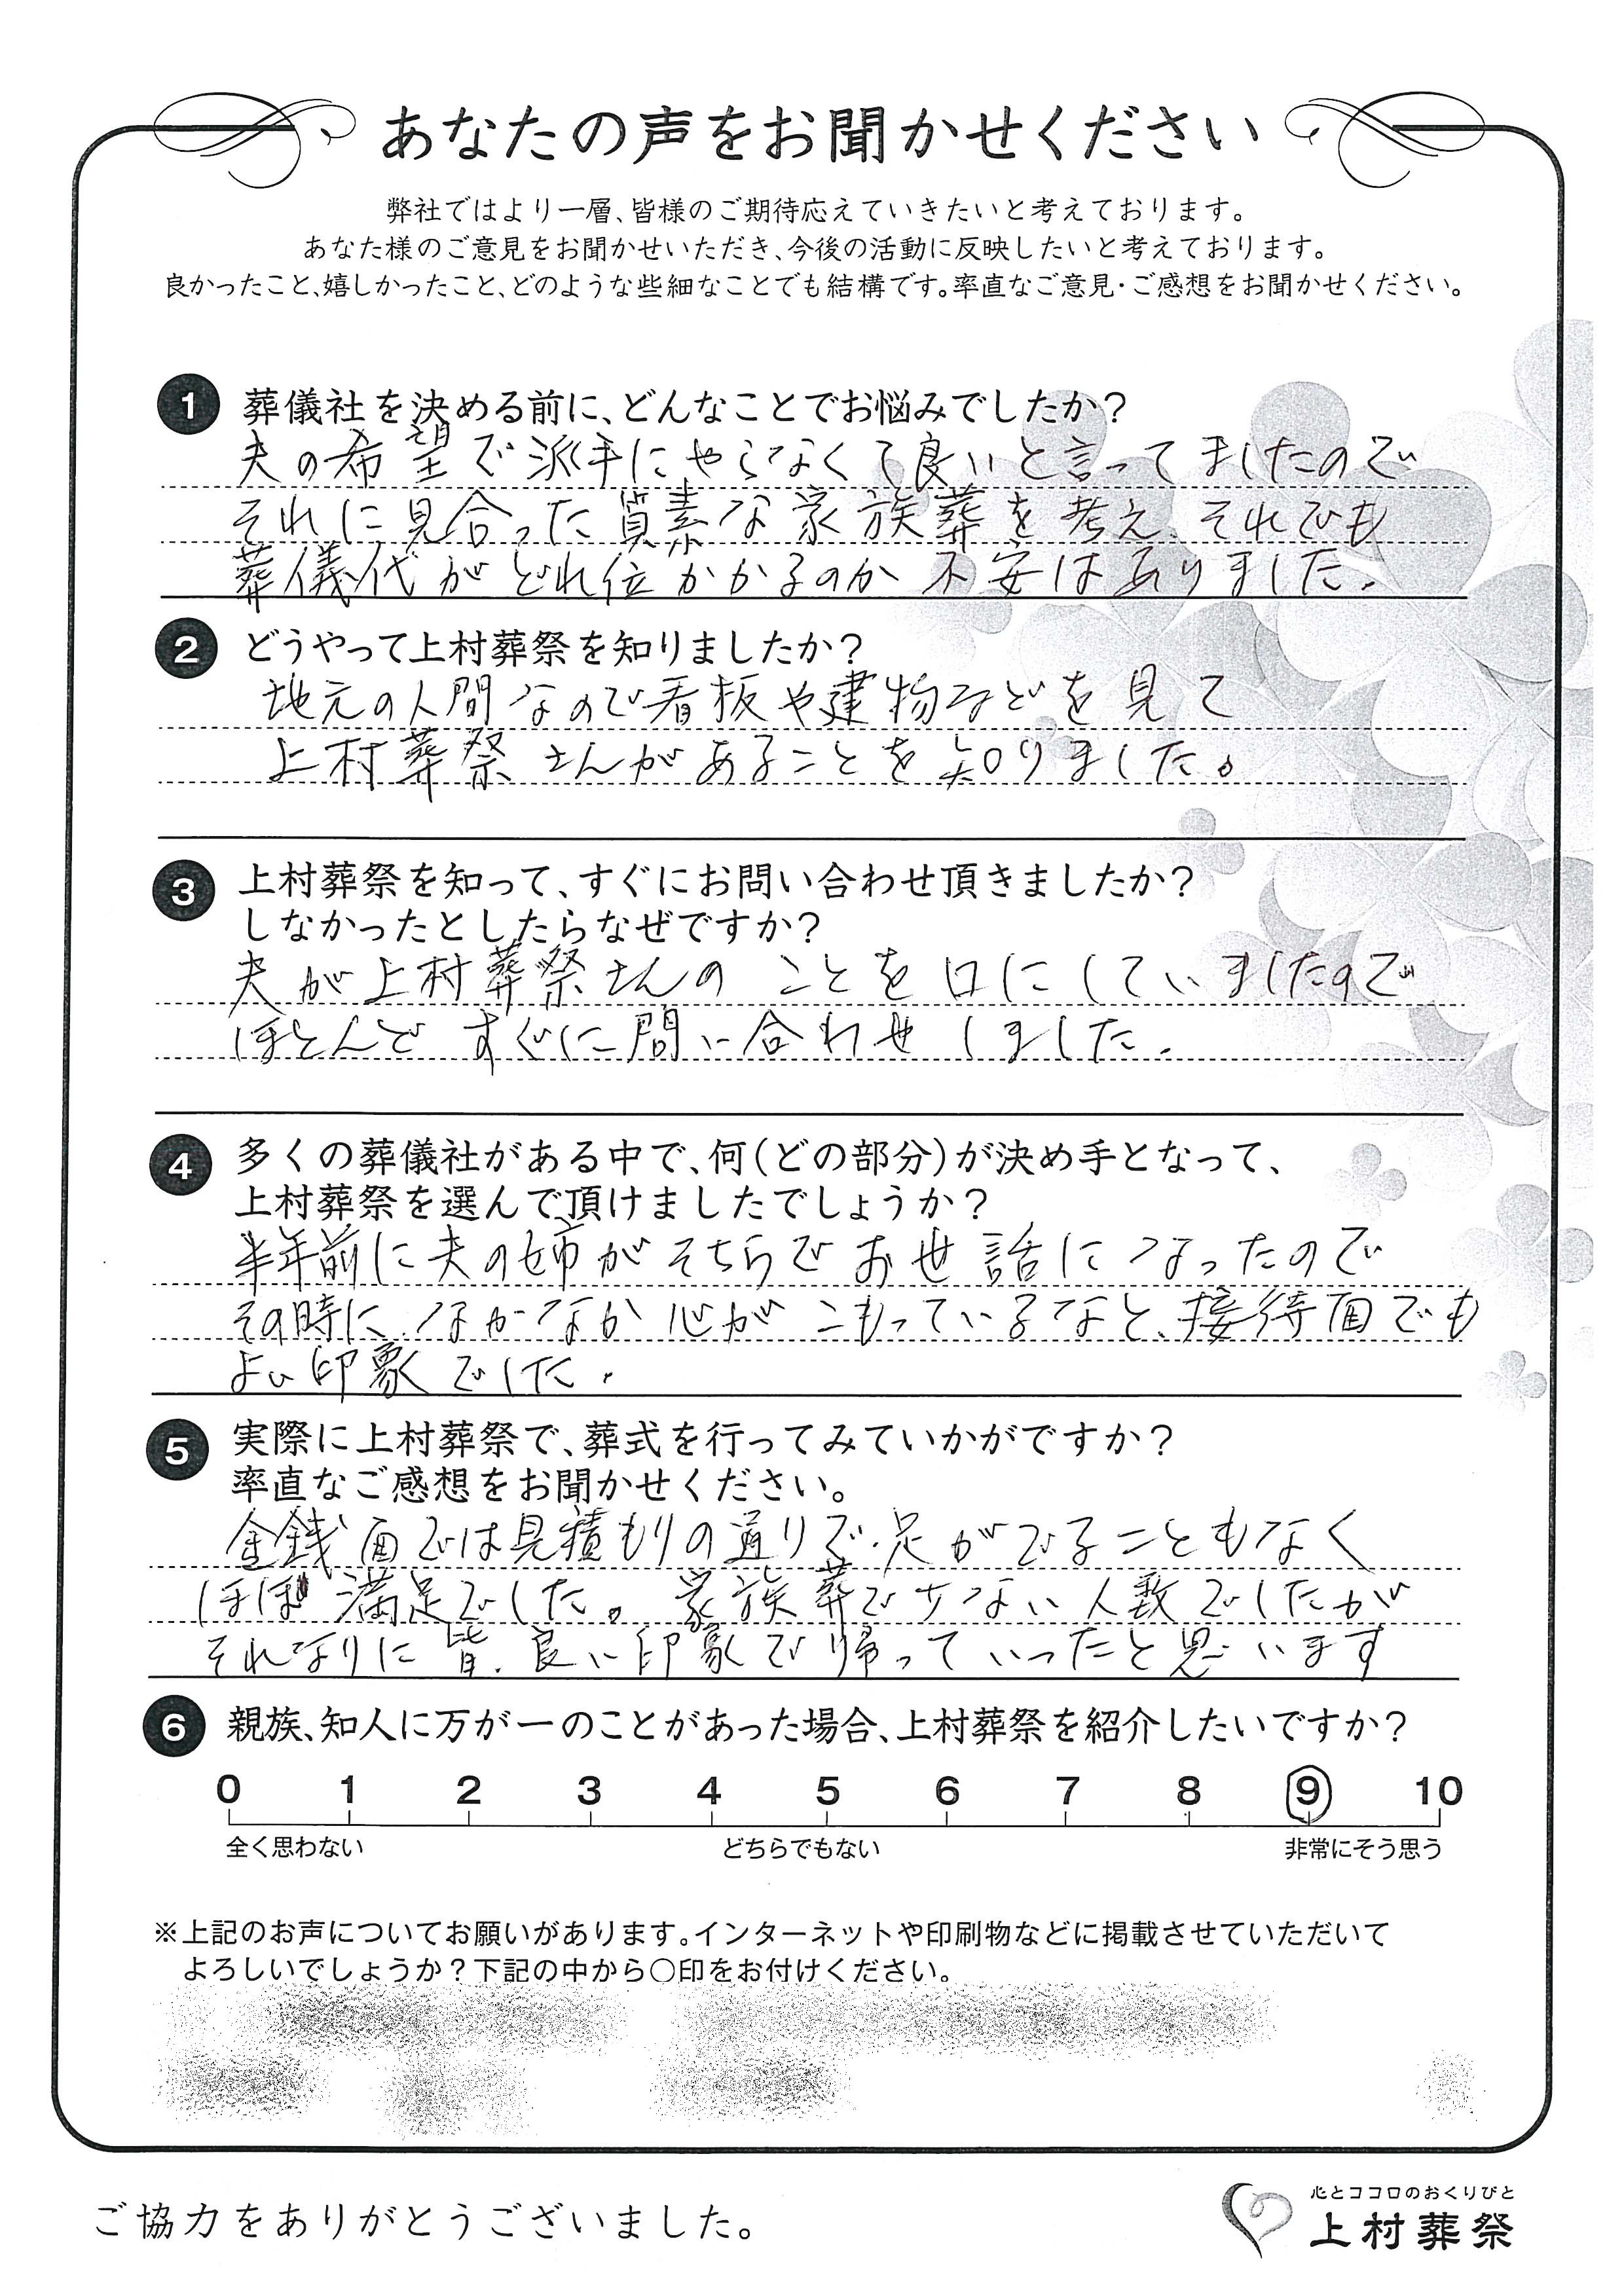 あなたの声をお聞かせください
弊社ではより一層、皆様のご期待応えていきたいと考えております。
あなた様のご意見をお聞かせいただき、今後の活動に反映したいと考えております。
良かったこと、嬉しかったこと、どのような些細なことでも結構です。率直なご意見・ご感想をお聞かせください。
1 葬儀社を決める前に、どんなことでお悩みでしたか?
夫の希望で派手にやらなくて良いと言ってましたので
それに見合った質素な家族葬を考え、それでも
葬儀代がどれ位かかるのか不安はありました。
2 どうやって上村葬祭を知りましたか?
地元の人間なので看板や建物などを見て
上村葬祭さんがあることを知りました。
3 上村葬祭を知って、すぐにお問い合わせ頂きましたか?
しなかったとしたらなぜですか?
夫が上村葬祭さんのことを口にしていましたので
ほとんどすぐに問い合わせしました。
4 多くの葬儀社がある中で、何(どの部分)が決め手となって、
上村葬祭を選んで頂けましたでしょうか?
半年前に夫の姉がそちらでお世話になったので
その時に、なかなか心がこもっているなと、接待面でも
よい印象でした。
5 実際に上村葬祭で、葬式を行ってみていかがですか?
率直なご感想をお聞かせください。
金銭面では見積もりの通りで、足がでることもなく
ほぼ満足でした。家族葬で少ない人数でしたが
それなりに皆、良い印象で帰っていったと思います
6 親族、知人に万が一のことがあった場合、上村葬祭を紹介したいですか?
0 1 2 3 4 5 6 7 8 9 10
全く思わない どちらでもない 非常にそう思う
※上記のお声についてお願いがあります。インターネットや印刷物などに掲載させていただいて
よろしいでしょうか?下記の中から○印をお付けください。
ご協力をありがとうございました。
心とココロのおくりびと
上村葬祭